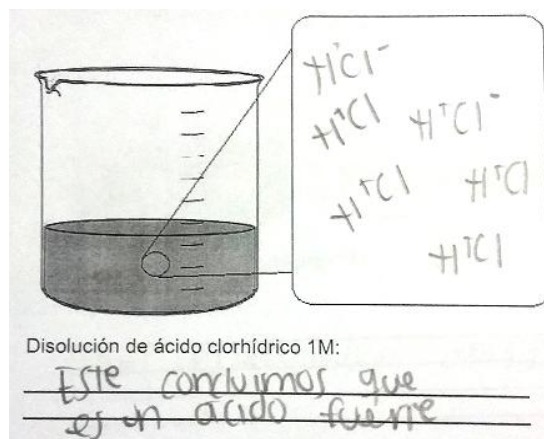 H⁺Cl⁻
H⁺Cl
H⁺Cl⁻
H⁺Cl
H⁺Cl
H⁺Cl
Disolución de ácido clorhídrico 1M:
Este concluimos que
es un ácido fuerte